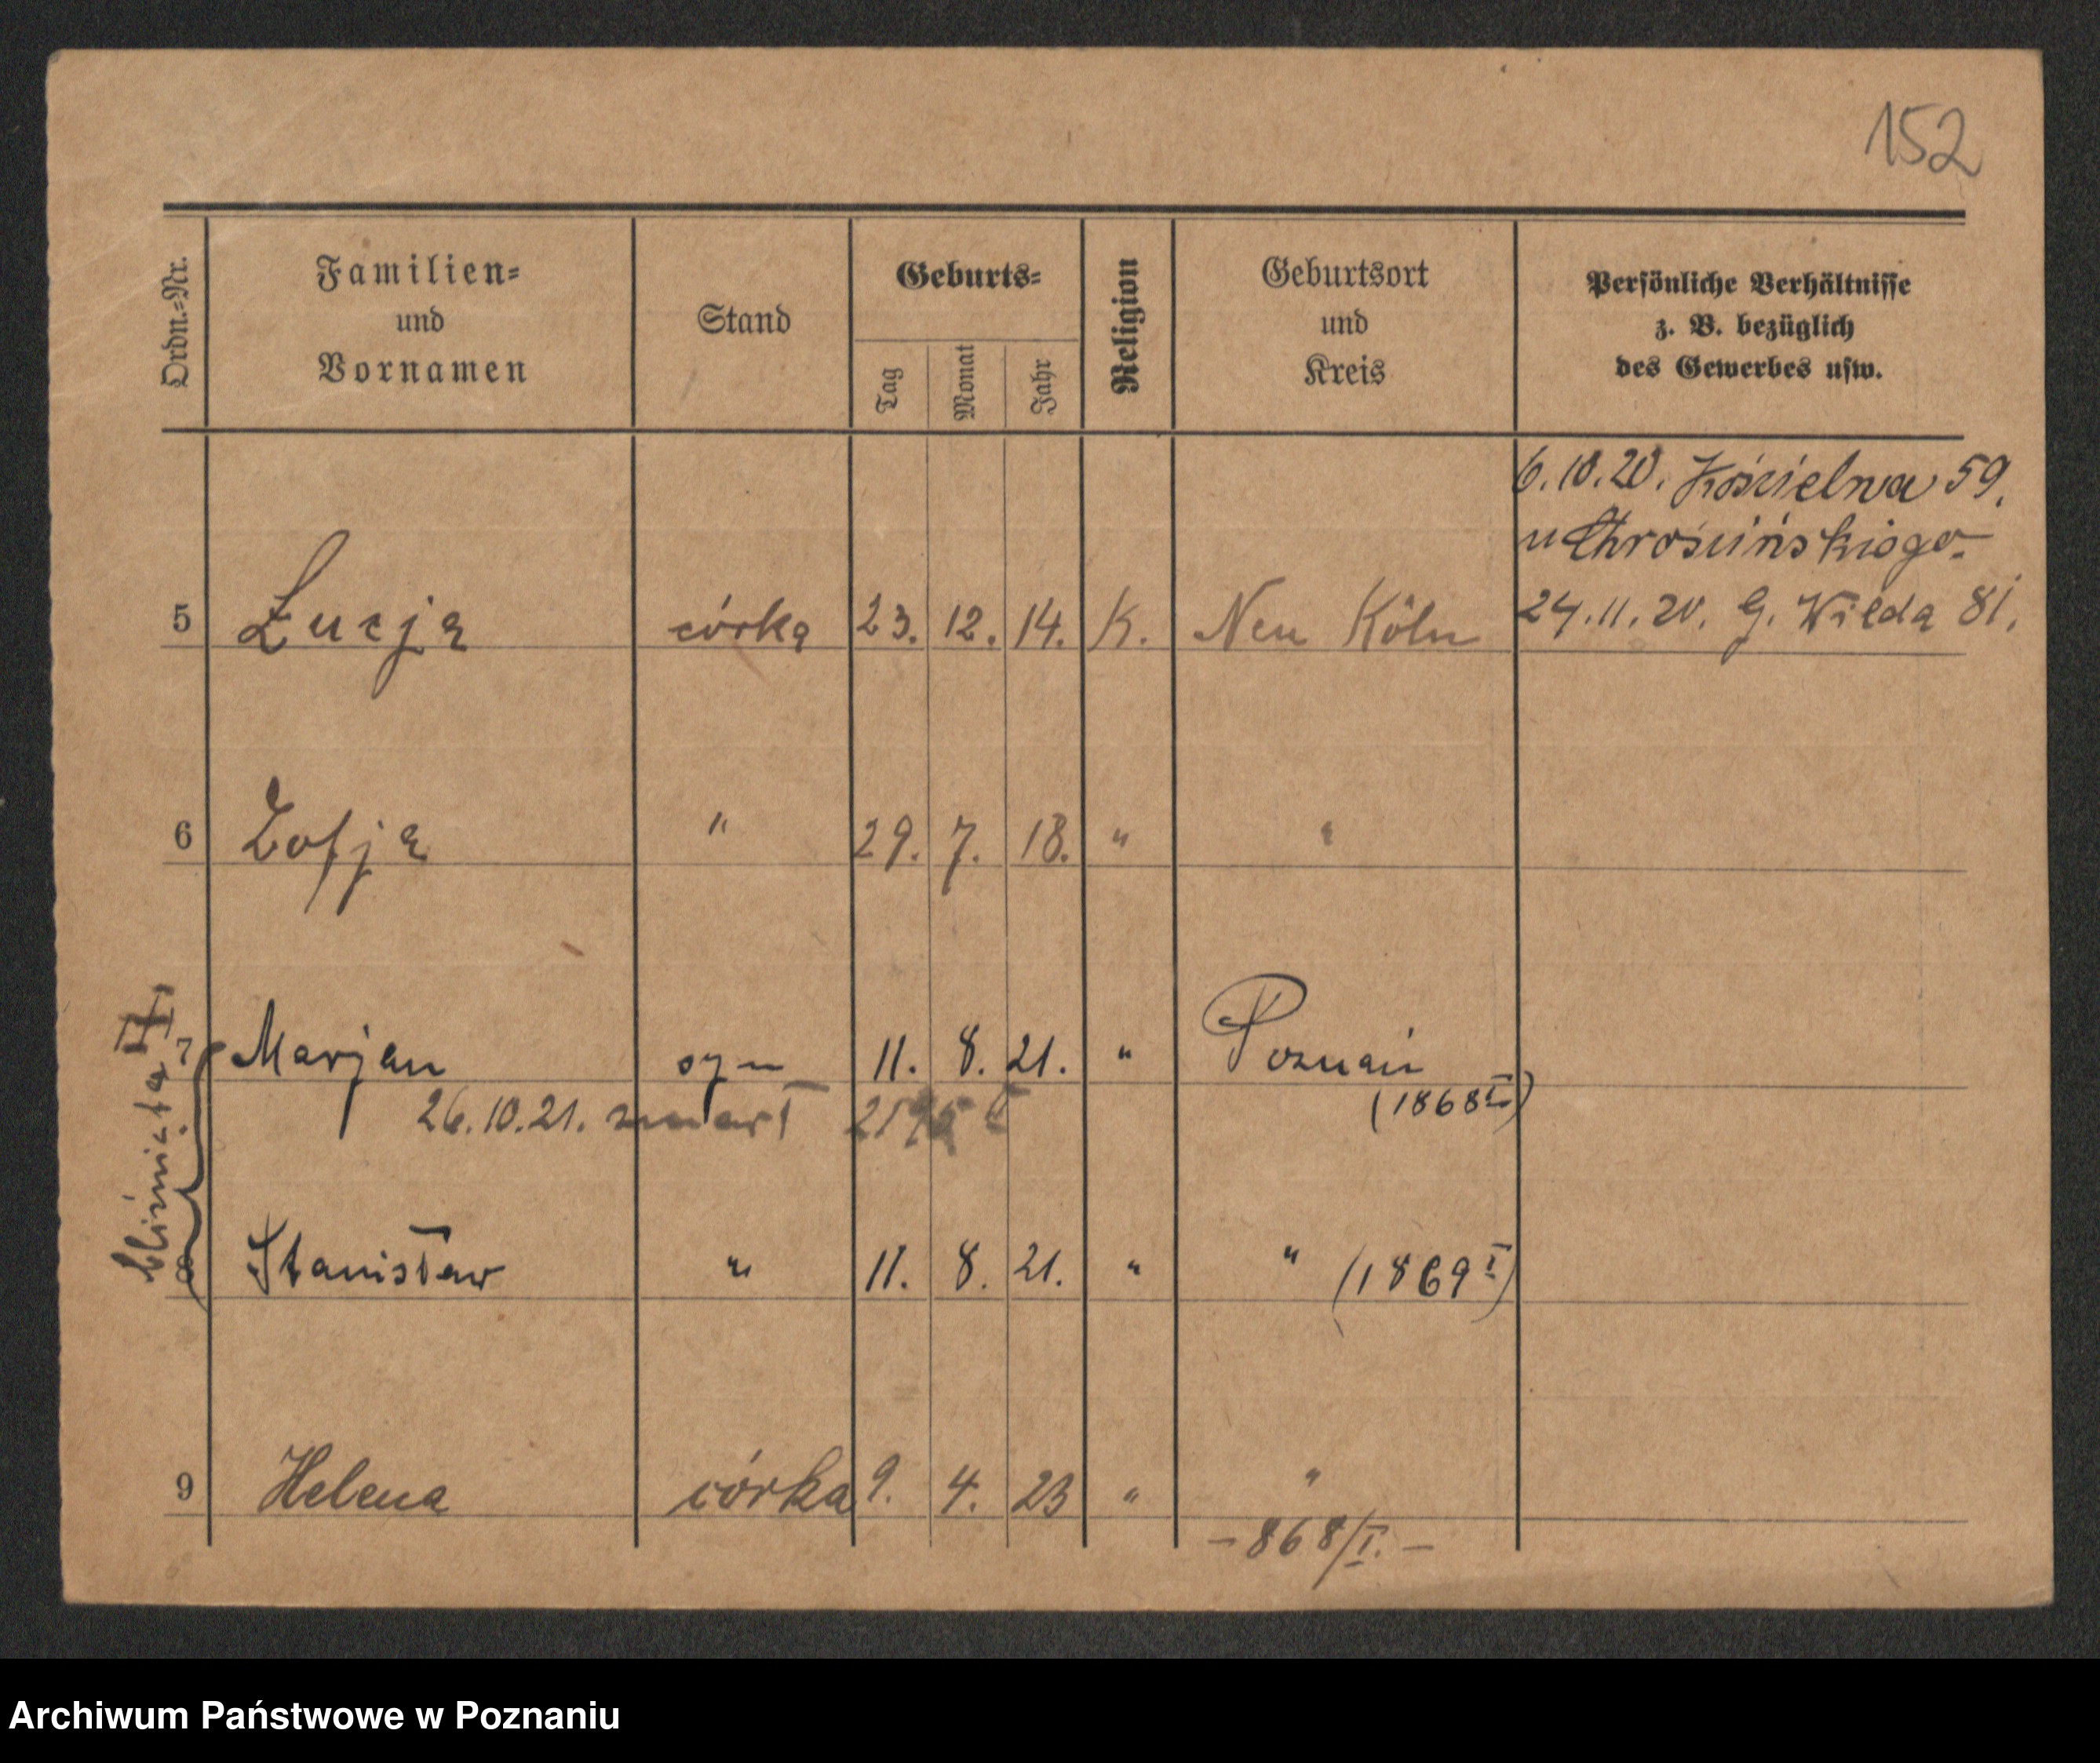 152
Ordn.=Nr. Familien= und Vornamen Stand Geburts= Tag Monat Jahr Religion Geburtsort und Kreis Persönliche Verhältnisse z. B. bezüglich des Gewerbes usw.
6.10.20. Kościelna 59.
u Chrościńskiego.
24.11.20. G. Wilda 81.
5 Łucja córka 23. 12. 14. K. Neu Köln
6 Zofja " 29. 7. 18. " "
bliźnięta II
7 Marjan syn 11. 8. 21. " Poznań
(1868 I)
26.10.21. zmarł
8 Stanisław " 11. 8. 21. " " (1869 I)
9 Helena córka 9. 4. 23 " "
- 868/I. -
Archiwum Państwowe w Poznaniu